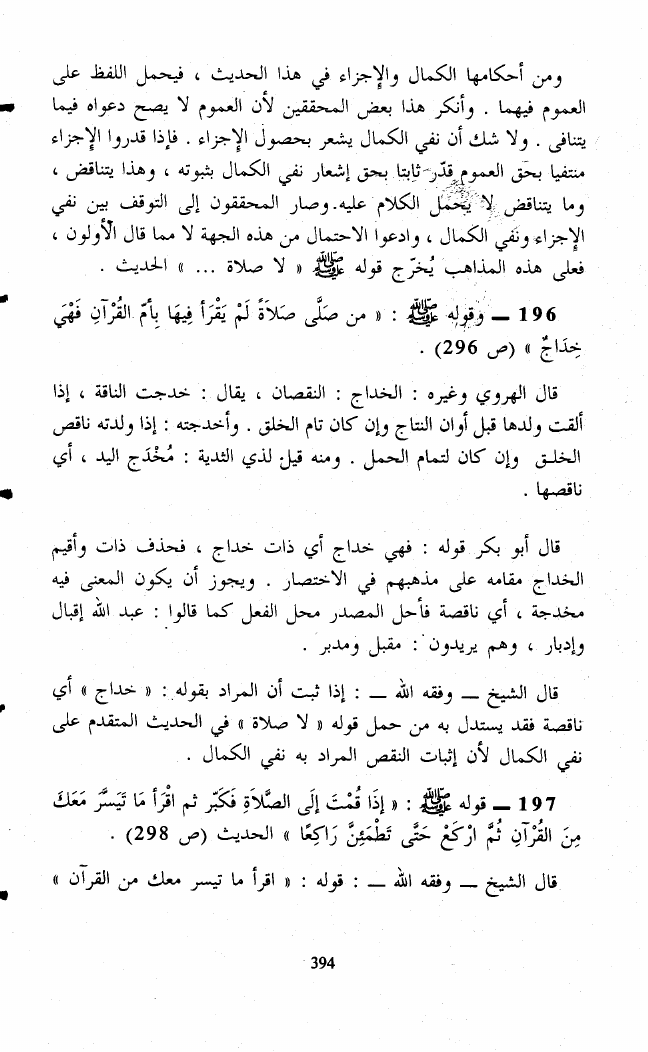 ومن أحكامها الكمال والإجزاء في هذا الحديث ، فيحمل اللفظ على
العموم فيهما . وأنكر هذا بعض المحققين لأن العموم لا يصح دعواه فيما
يتنافى . ولا شك أن نفي الكمال يشعر بحصول الإجزاء . فإذا قدروا الإجزاء
منتفيا بحق العموم قدّر ثابتا بحق إشعار نفي الكمال بثبوته ، وهذا يتناقض ،
وما يتناقض لا يحمل الكلام عليه. وصار المحققون إلى التوقف بين نفي
الإجزاء ونفي الكمال ، وادعوا الاحتمال من هذه الجهة لا مما قال الأولون ،
فعلى هذه المذاهب يُخَرّج قوله ﷺ « لا صلاة ... » الحديث .
196 ــ وقوله ﷺ : « من صَلَّى صَلاَةً لَمْ يَقْرَأ فِيهَا بِأمّ القُرْآنِ فَهْيَ
خِدَاجٌ » (ص 296) .
قال الهروي وغيره : الخداج : النقصان ، يقال : خدجت الناقة ، إذا
ألقت ولدها قبل أوان النتاج وإن كان تام الخلق . وأخدجته : إذا ولدته ناقص
الخلـق وإن كان لتمام الحمل . ومنه قيل لذي الثدية : مُخْدَج اليد ، أي
ناقصها .
قال أبو بكر قوله : فهي خداج أي ذات خداج ، فحذف ذات وأقيم
الخداج مقامه على مذهبهم في الاختصار . ويجوز أن يكون المعنى فيه
مخدجة ، أي ناقصة فأحل المصدر محل الفعل كما قالوا : عبد الله إقبال
وإدبار ، وهم يريدون : مقبل ومدبر .
قال الشيخ ــ وفقه الله ــ : إذا ثبت أن المراد بقوله : « خداج » أي
ناقصة فقد يستدل به من حمل قوله « لا صلاة » في الحديث المتقدم على
نفي الكمال لأن إثبات النقص المراد به نفي الكمال .
197 ــ قوله ﷺ : « إذَا قُمْتَ إلَى الصَّلاَةِ فَكَبّر ثم اقْرَأ مَا تَيَسَّرَ مَعَكَ
مِنَ القُرْآنِ ثُمَّ ارْكَعْ حَتَّى تَطْمَئِنَّ رَاكِعًا » الحديث (ص 298) .
قال الشيخ ــ وفقه الله ــ : قوله : « اقرأ ما تيسر معك من القرآن »
394